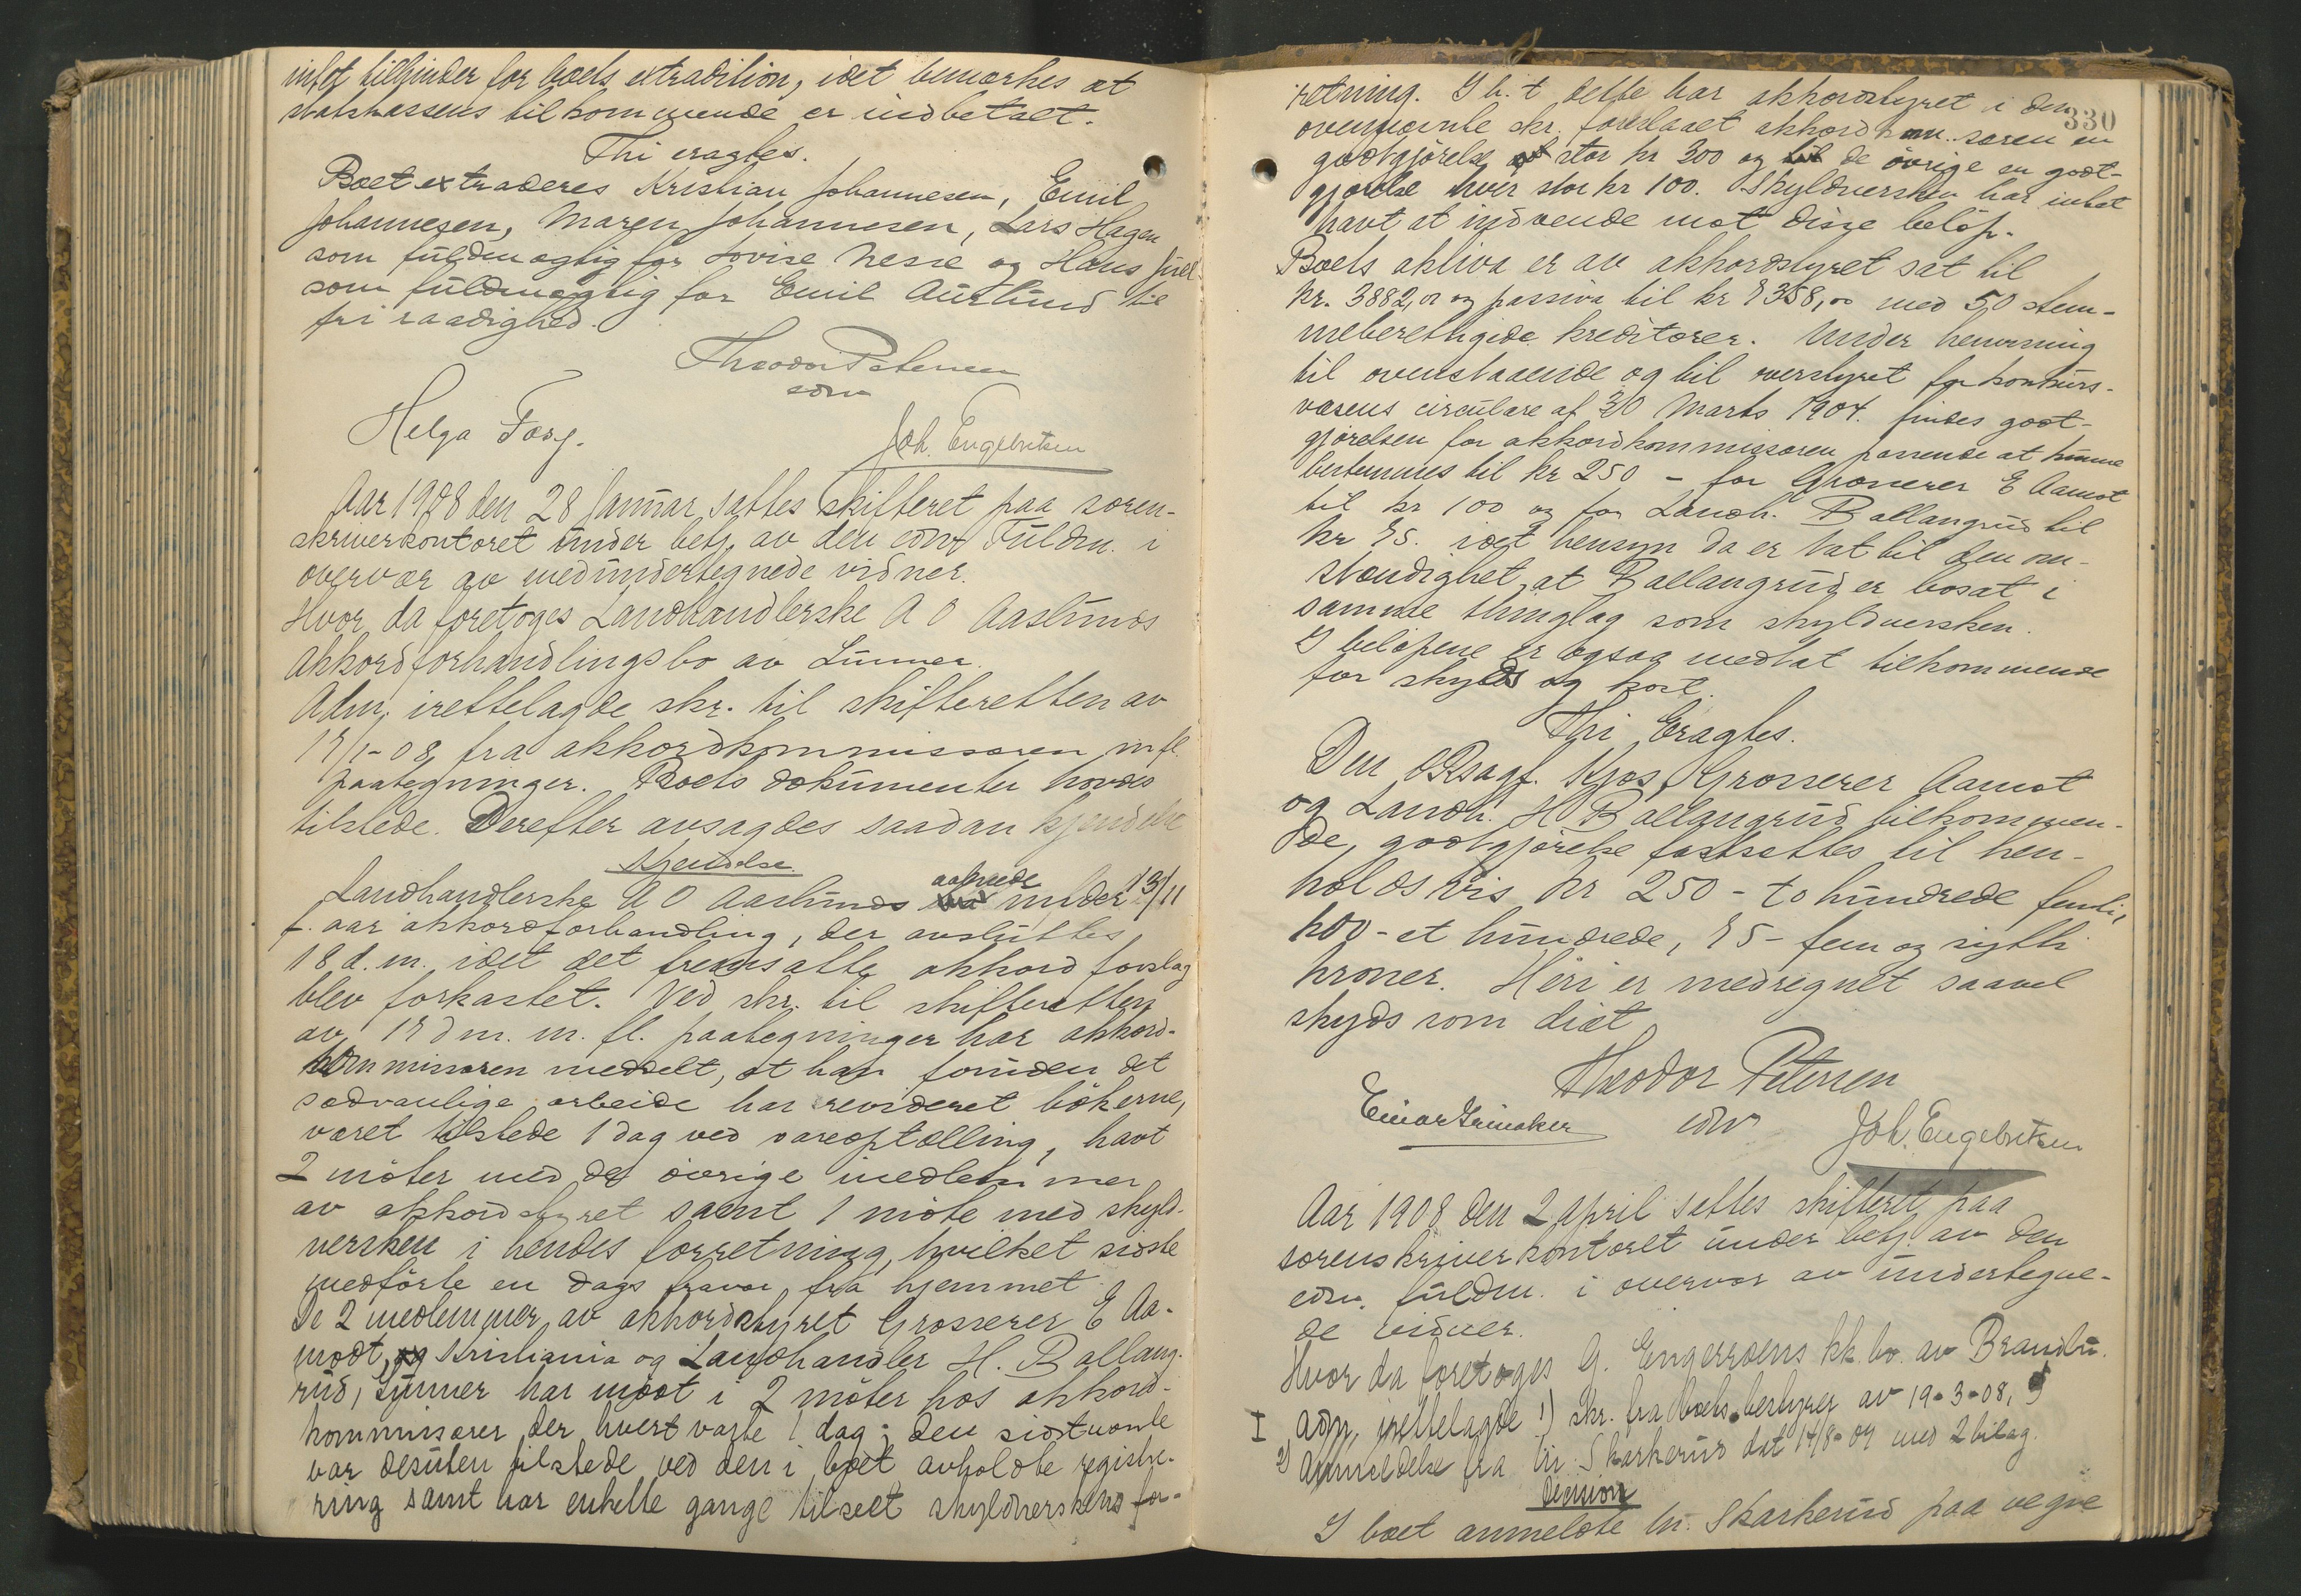 intet tilhinder for boets extradition, idet bemærkes at
statskassens tilkommende er indbetalt.
Thi eragtes.
Boet extraderes Kristian Johannesen, Emil
Johannesen, Maren Johannesen, Lars Hagen
som fuldmægtig for Lovise Nesse og Hans Juel
som fuldmægtig for Emil Aurlund til
fri raadighed.
Theodor Petersen
edsv
Helga Torg.
Joh. Engebretsen
Aar 1908 den 28 Januar sattes skifteret paa soren-
skriverkontoret under betj. av den edsv Fuldm. i
overvær av medundertegnede vidner.
Hvor da foretoges Landhandlerske A O Aaslunds
Akkordforhandlingsbo av Lunner.
Adm. irettelagde skr. til skifteretten av
17/1-08 fra akkordkommissæren m fl.
paategninger. Boets dokumenter havdes
tilstede. Derefter avsagdes saadan kjendelse
Kjendelse.
Landhandlerske A O Aaslunds aabnede under 13/11
f. aar akkordforhandling, der avsluttes
18 d. m. idet det fremsatte akkord forslag
blev forkastet. Ved skr. til skifteretten
av 17 d m. m. fl. paategninger har akkord-
kommissæren meddelt, at han foruden det
sædvanlige arbeide har revideret bökerne,
været tilstede 1 dag ved vareoptælling, havt
2 möter med de övrige medlemmer
av akkordstyret samt 1 möte med skyld-
nersken i hendes forretning, hvilket sidste
medförte en dags fravær fra hjemmet.
De 2 medlemmer av akkordstyret Grosserer E Aa-
modt, Kristiania og Landhandler H. Ballang-
rud, Lunner har mödt i 2 möter hos akkord-
kommissæren der hvert varte 1 dag; den sidstnævnte
var desuten tilstede ved den i boet avholdte registre-
ring samt har enkelte gange tilseet skyldnerskens for-
330
retning. I h. t dette har akkordstyret i den
ovennævnte skr. foreslaaet akkordkom. særen en
godtgjörelse stor kr 300 og de övrige en godt-
gjörelse hver stor kr 100. Skyldnersken har intet
havt at indvende mot disse belöp.
Boets aktiva er av akkordstyret sat til
kr. 3882,01 og passiva til kr 7358,00 med 50 stem-
meberettigede kreditorer. Under henvisning
til ovenstaaende og til overstyret for konkurs-
væsens circulære af 30 Marts 1904. findes godt-
gjörelsen for akkordkommissæren passende at kunne
bestemmes til kr 250 - for Grosserer E Aamot
til kr 100 og for Landh. Ballangrud til
kr 75. idet hensyn da er tat til den om-
stændighet, at Ballangrud er bosat i
samme thinglag som skyldnersken.
I belöpene er ogsaa medtat tilkommende
for skyds og kost.
Thi Eragtes.
Den ORsagf. Kjos, Grosserer Aamot
og Landh. H Ballangrud tilkommen-
de, godtgjörelse fastsættes til hen-
holdsvis kr 250 - to hundrede femti,
100 - et hundrede, 75 - fem og sytti
kroner. Heri er medregnet saavel
skyds som diæt
Theodor Petersen
Einar Grinaker edsv Joh. Engebretsen
Aar 1908 den 2 april settes skifteret paa
sorenskriverkontoret under betj. av den
edsv. fuldm. i overvær av undertegne-
de vidner.
Hvor da foretoges G. Engerroens kk. bo. av Brandbu.
I adm. irettelagde 1) skr. fra boets bestyrer av 19-3-08,
2) Anmeldelse fra hr. Skarkerud dat 14/8-07 med 2 bilag.
Decision
I boet anmeldte hr. Skarkerud paa vegne